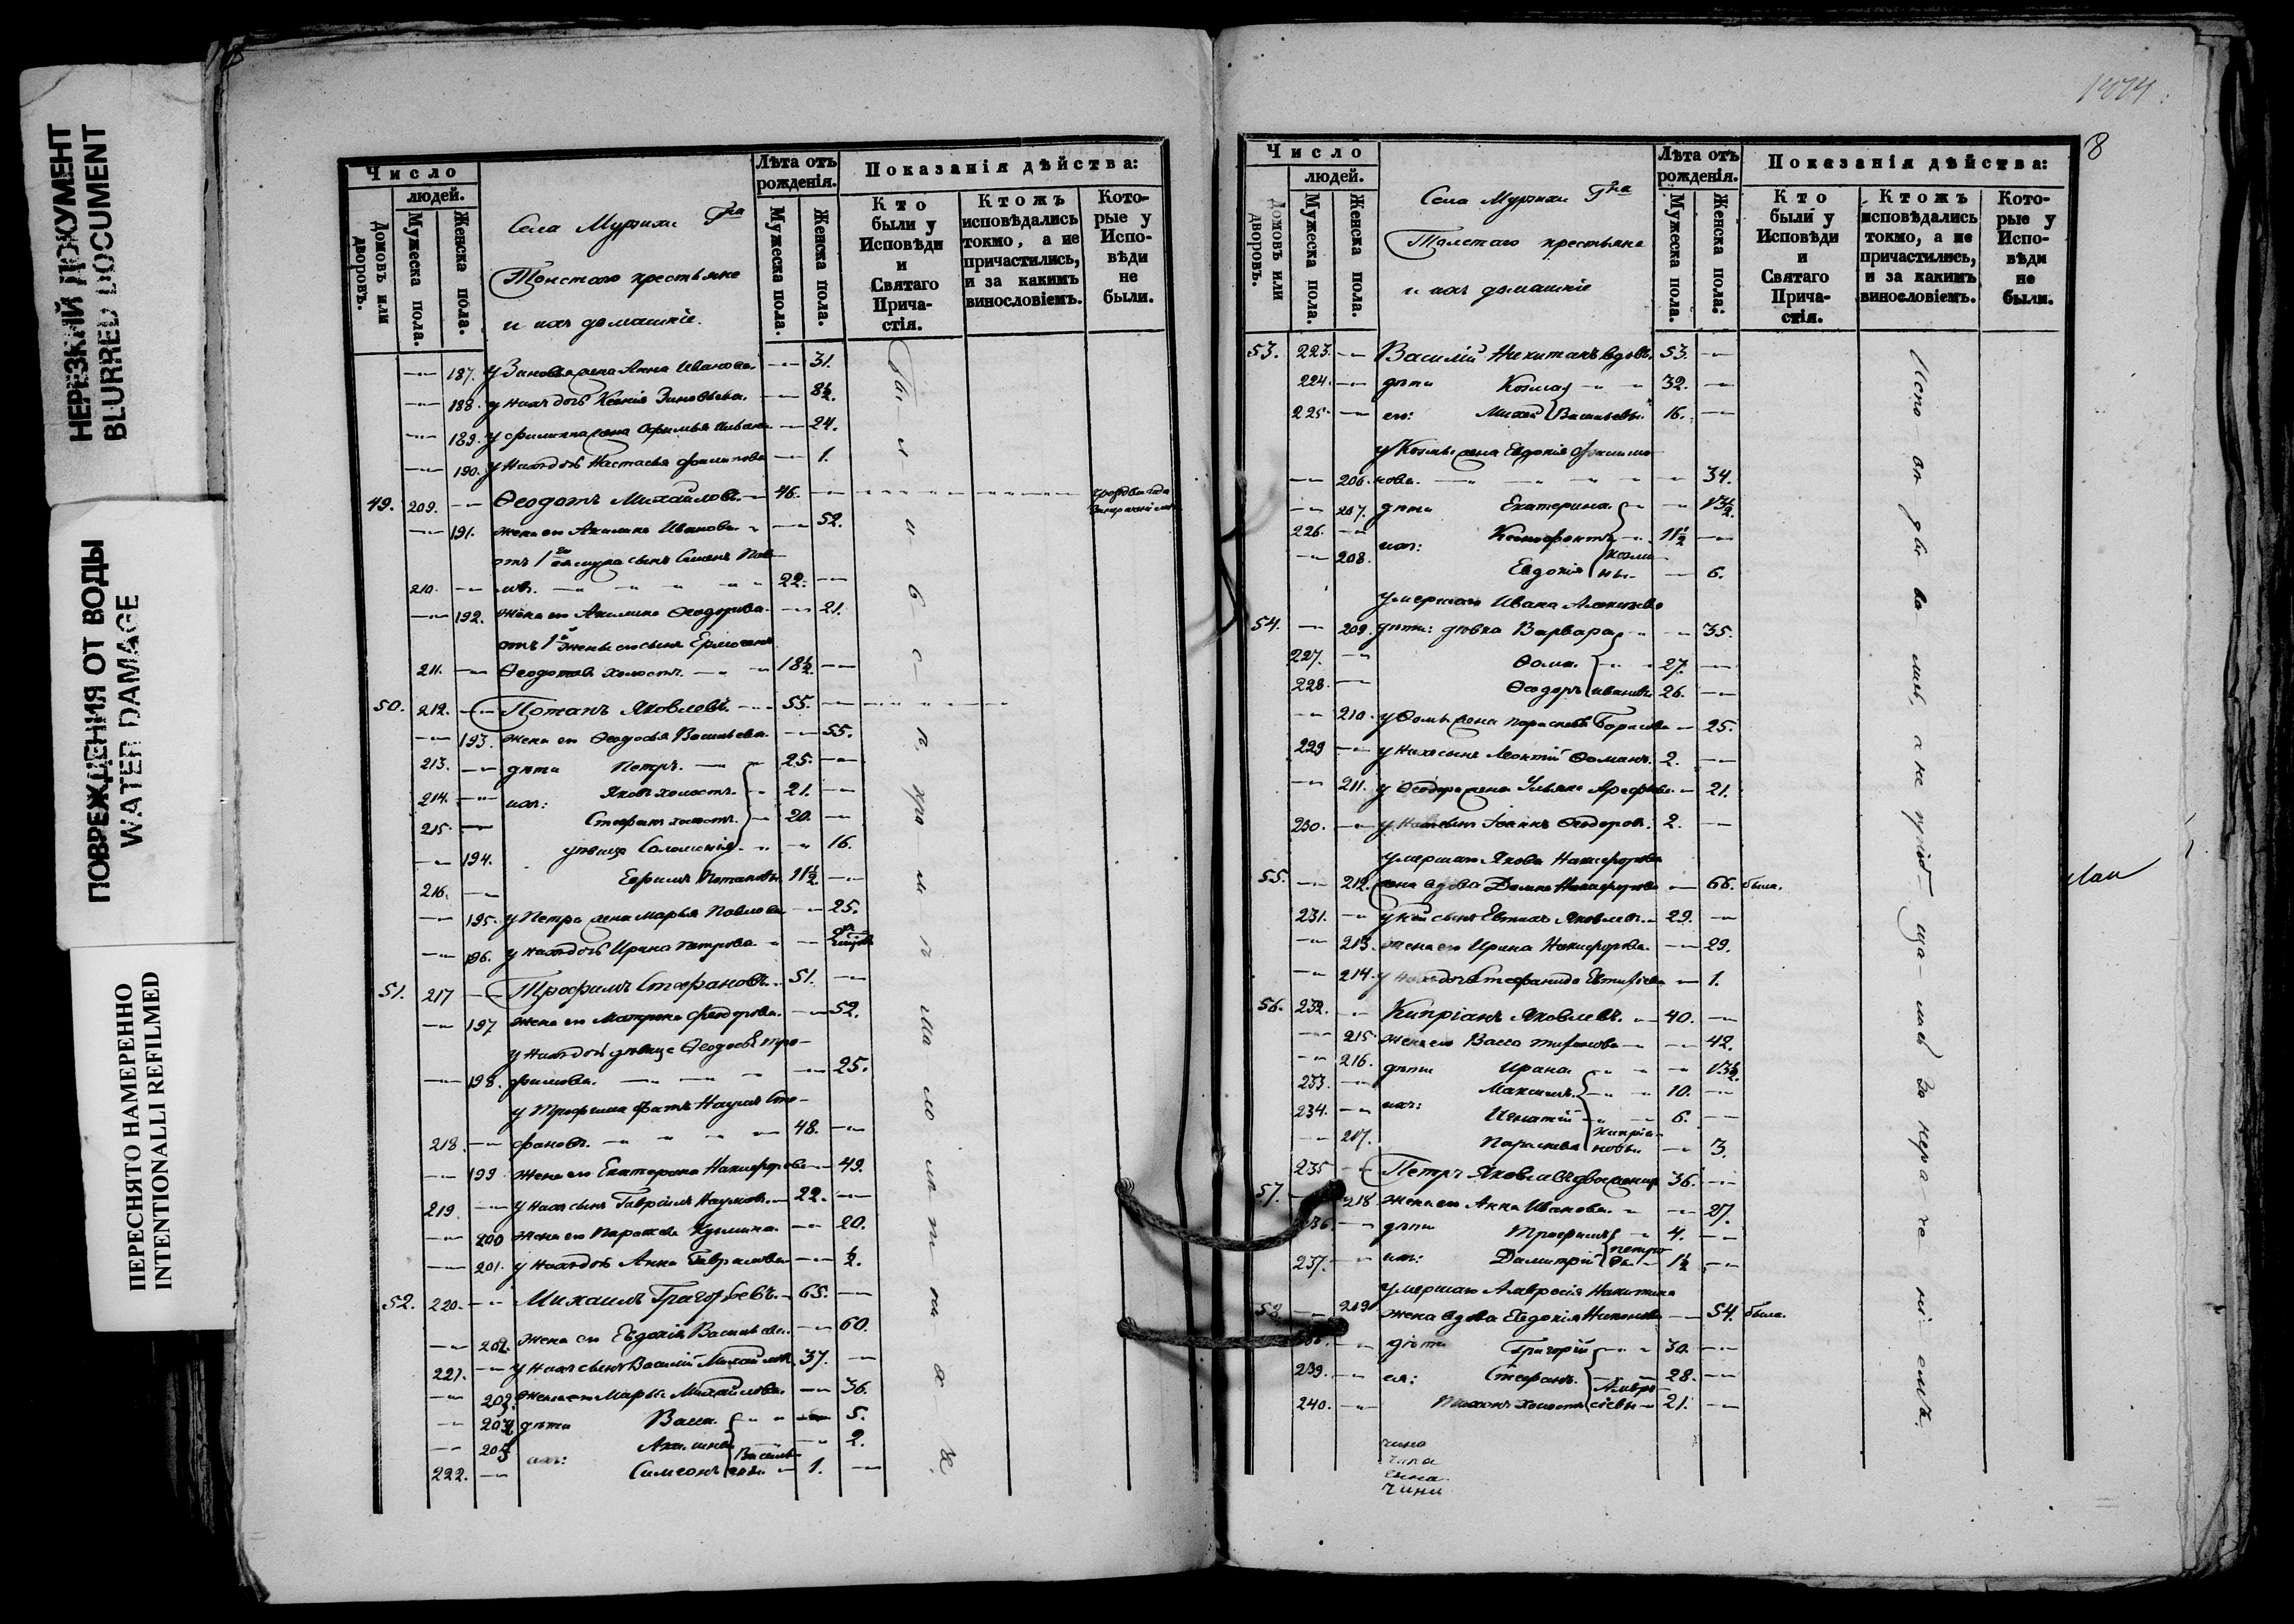 НЕРЕЗКИЙ ДОКУМЕНТ
BLURRED DOCUMENT
ПОВРЕЖДЕНИЯ ОТ ВОДЫ
WATER DAMAGE
ПЕРЕСНЯТО НАМЕРЕННО
INTENTIONALLI REFILMED
Число
людей.
Домовъ или дворовъ.
Мужеска пола.
Женска пола.
Села Мурзихи Гна
Толстого крестьяне
и ихъ домашніе.
Лѣта отъ рожденія.
Мужеска пола.
Женска пола.
Показанія дѣйства:
Кто были у Исповѣди и Святаго Причастія.
Ктожъ исповѣдались токмо, а не причастились, и за какимъ винословіемъ.
Которые у Исповѣди не были.
187. у Зиновья жена Анна Иванова. 31.
188. у нихъ дочь Ксенія Зиновьева. 8½.
189. у Филиппа жена Офимья 24.
190. у нихъ дочь Настасья Филипова 1.
49. 209. Ѳеодотъ Михайловъ. 46.
191. жена ево Акилина Иванова. 52.
отъ 1го ея мужа сынъ Семенъ
210. 22.
192. жена ево Акилина Ѳеодорова. 21.
отъ 1й жены ево сынъ
211. Ѳеодотовъ холостъ. 18½
50. 212. Потапъ Яковлевъ. 55.
193. жена ево Ѳеодосья Васильева. 55.
213. дѣти Петръ. 25.
214. ихъ: Яковъ холостъ. 21.
215. Стефанъ холостъ. 20.
194. дѣвица Соломонія. 16.
216. Ефримъ Потаповы 11½.
195. у Петра жена Марья Павлова 25.
196. у нихъ дочь Ирина Петрова.
51. 217 Трофимъ Стефановъ. 51.
197 жена ево Матрена Феодорова. 52.
у нихъ дочь дѣвица Ѳеодосья Тро-
198. фимова. 25.
у Трофима братъ Наумъ Сте-
218. фановъ. 48.
199 жена ево Екатерина Никифорова 49.
219. у нихъ сынъ Гавріилъ Наумовъ. 22.
200 жена ево Парасковья 20.
201. у нихъ дочь Анна Гаврилова ½.
52. 220. Михаилъ Григорьевъ. 65.
202. жена ево Евдокія Васильева. 60.
221. у нихъ сынъ Василій Михайловъ 37.
203. жена ево Марья Михайлова. 36.
204 дѣти Васса. 5.
205 ихъ: Акилина Василье- 2.
222. Симеонъ вы. 1.
8
Число
людей.
Домовъ или дворовъ.
Мужеска пола.
Женска пола.
Села Мурзихи Гна
Толстаго крестьяне
и ихъ домашніе
Лѣта отъ рожденія.
Мужеска пола.
Женска пола:
Показанія дѣйства:
Кто были у Исповѣди и Святаго Причастія.
Ктожъ исповѣдались токмо, а не причастились, и за какимъ винословіемъ.
Которые у Исповѣди не были.
53. 223. Василій Никитинъ вдовъ. 53.
224. дѣти Козма 32.
225. ево: Васильевы. 16.
у Козмы жена Евдокія Филимо-
206. нова. 34.
207. дѣти Екатерина. 13½.
226. ихъ: Ксенофонтъ 11½
208. Евдокія Козмины. 6.
умершаго Ивана
54. 209. дѣти: дѣвка Варвара 35.
227. Ѳома. 27.
228. Ѳеодоръ Ивановы 26.
210. у Ѳомы жена Парасковья Борисова 25.
229 у нихъ сынъ Леонтій Ѳоминъ. 2.
211. у Ѳеодора жена Ульяна 21.
230. у нихъ сынъ Іоаннъ Ѳеодоровъ. 2.
умершаго Якова Никифорова
55. 212. жена вдова Домна Никифорова 66. была.
231. у ней сынъ Евтихъ Яковлевъ. 29.
213. жена ево Ирина Никифорова. 29.
214. у нихъ дочь Стефанида Евтихіева 1.
56. 232. Кипріанъ Яковлевъ. 40.
215. жена ево Васса 42.
216. дѣти Ирина 13½.
233. Максимъ. 10.
234. ихъ: Игнатій 6.
217. Парасковья Кипріановы 3.
235 Петръ Яковлевъ 36.
57. 218 жена ево Анна Иванова. 27.
236. дѣти Трофимъ 4.
237. ихъ: Димитрій Петровы 1½
умершаго Амвросія Никитина
58. 219 жена вдова Евдокія 54. была.
дѣти Григорій 30.
239. ея: Стефанъ. 28.
240. холостъ Амвросіевы 21.